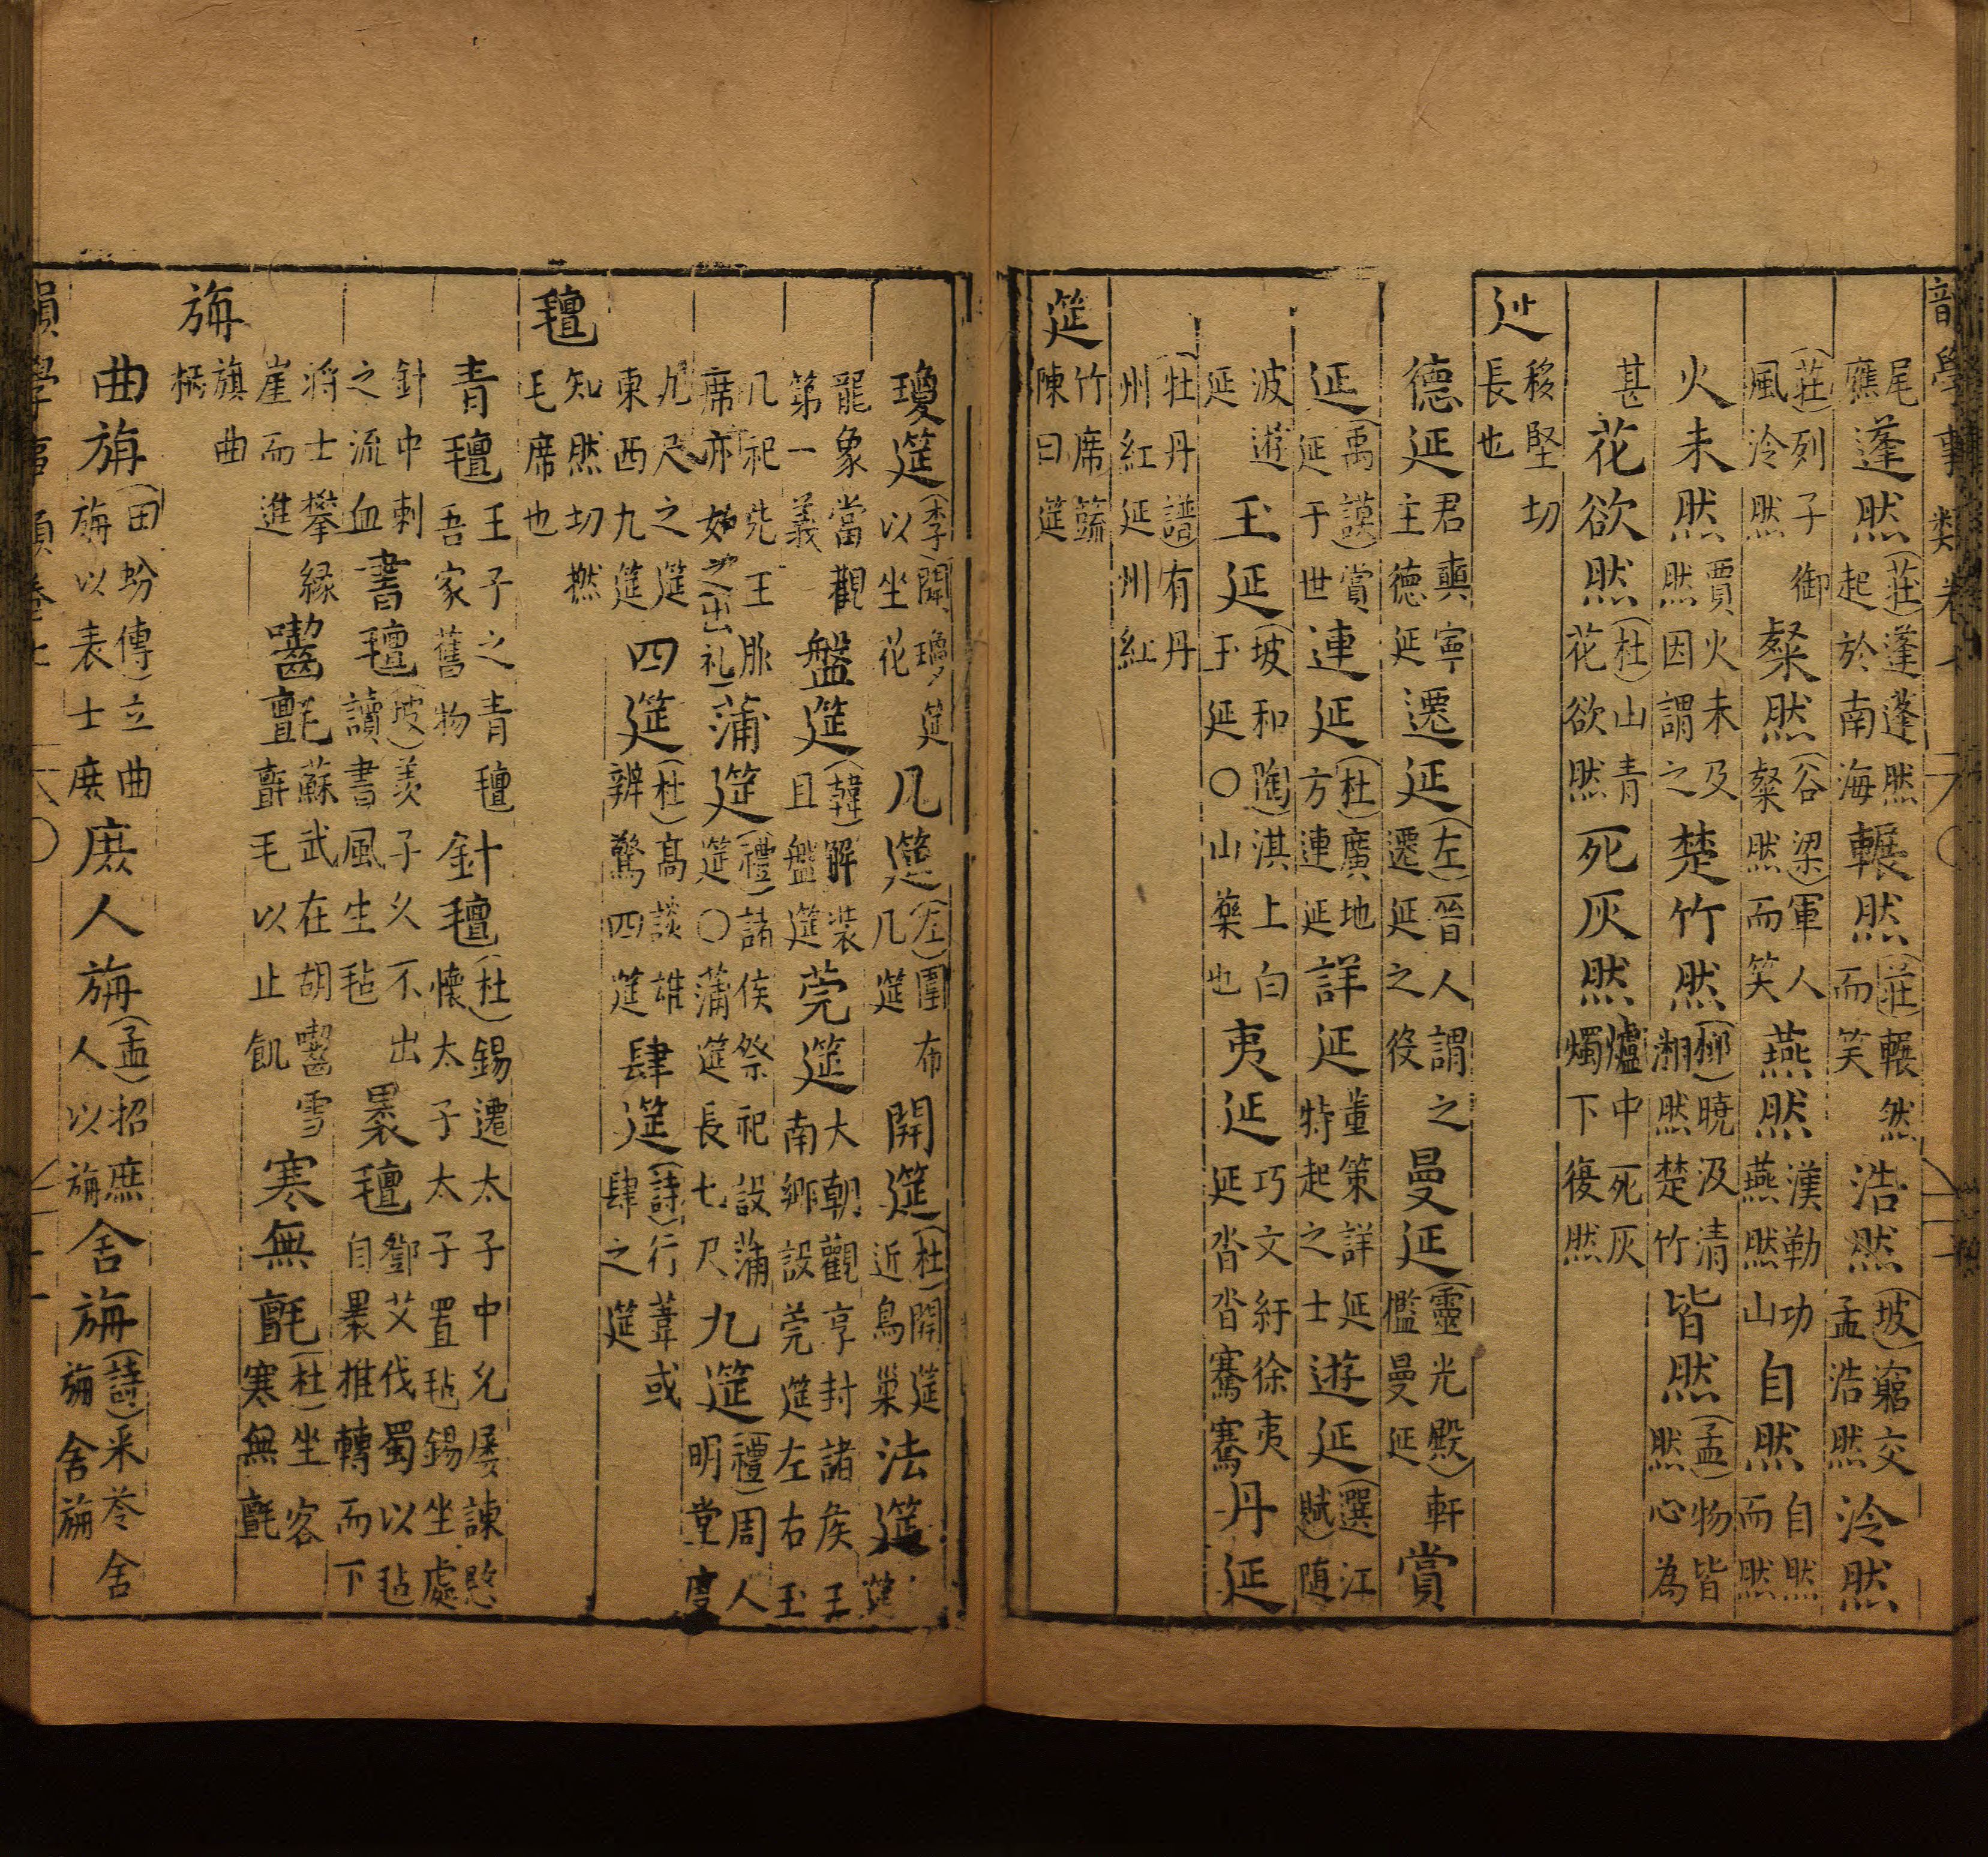 韻學事類卷七
尾應蓬然(莊)蓬蓬然起於南海輾然(莊)輾然而笑浩然(坡)窮交孟浩然泠然
(莊)列子御風泠然粲然(谷梁)軍人粲然而笑燕然漢勒功燕然山自然自然而然
火未然賈火未及然因謂之楚竹然(柳)曉汲清湘然楚竹皆然(孟)物皆然心為
甚花欲然(杜)山青花欲然死灰然爐中死灰燭下復然
延移堅切長也
德延君奭寧主德延遷延(左)晉人謂之遷延之役曼延(靈光殿)軒檻曼延賞
延(禹謨)賞延于世連延(杜)廣地方連延詳延董策詳延特起之士遊延(選江賦)随
波遊延玉延(坡和陶)淇上白玉延〇山藥也夷延巧文紆徐夷延沓沓騫騫丹延
(牡丹譜)有丹州紅延州紅
筵竹席䟽陳曰筵
瓊筵(李)開瓊筵以坐花几筵(左)圍布几筵開筵(杜)開筵近鳥巢法筵筵
龍象當觀第一義盤筵(韓)解裝且盤筵莞筵大朝觀享封諸侯王南鄉設莞筵左右玉
几祀先王胙席亦如之出礼蒲筵(禮)諸侯祭祀設蒲筵〇蒲筵長七尺九筵(禮)周人明堂度
九尺之筵東西九筵四筵(杜)高談雄辨驚四筵肆筵(詩)行葦或肆之筵
氊知然切撚毛席也
青氊王子之青氊吾家舊物針氊(杜)錫遷太子中允屡諫愍懷太子太子置毡錫坐處
針中刺之流血書氊(坡)羡子久不出讀書風生毡裹氊鄧艾伐蜀以毡自裹推轉而下
将士攀緣崖而進囓氈蘇武在胡囓雪氈毛以止飢寒無氈(杜)坐客寒無氈
旃旗曲柄
曲旃(田蚡傳)立曲旃以表士庶庶人旃(孟)招庶人以旃舍旃(詩)采苓舍旃舍旃
韻學事類卷七